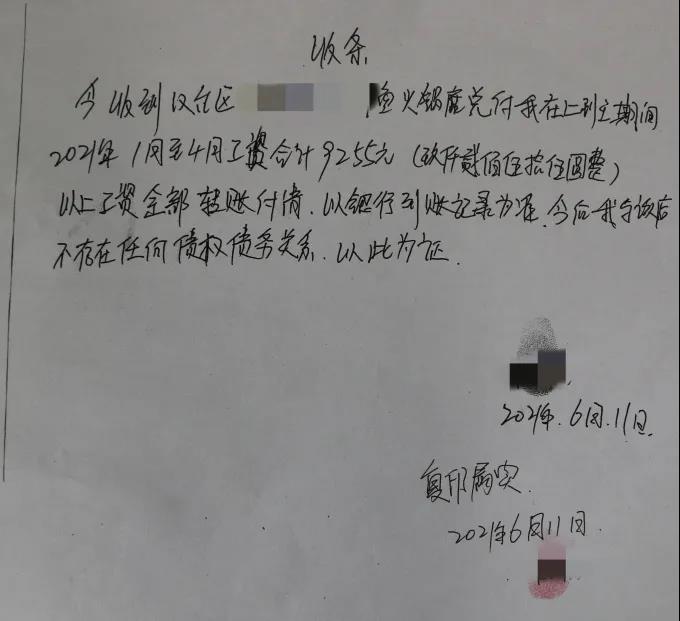 收条
今收到汉台区 鱼火锅店兑付我在上班期间
2021年1月至4月工资合计9255元（玖仟贰佰伍拾伍圆整）
以上工资全部转账付清、以银行到账记录为准、今后我与该店
不存在任何债权债务关系、以此为证.
2021年.6月.11日.
复印属实.
2021年6月11日.